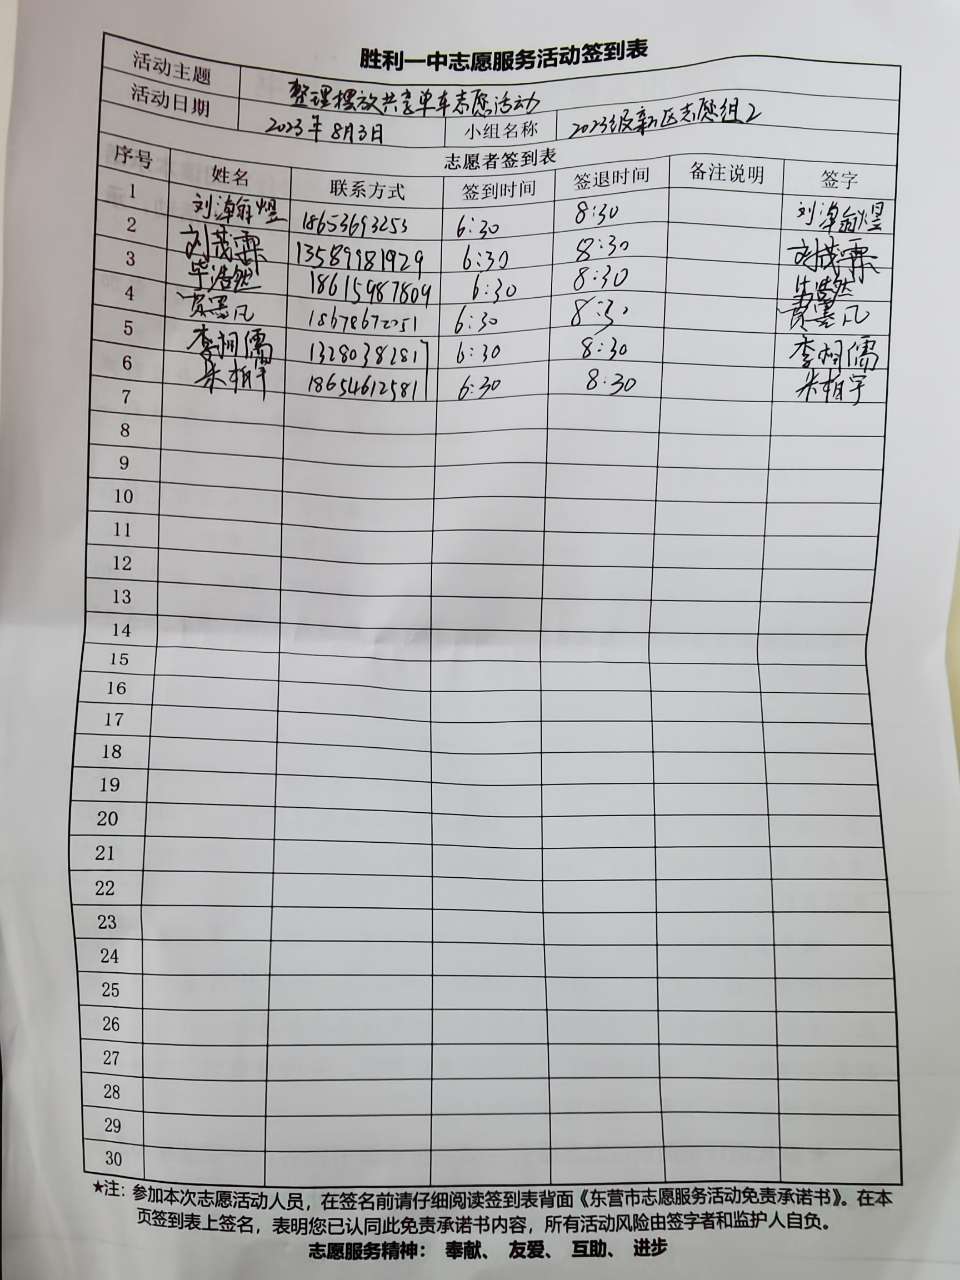 胜利一中志愿服务活动签到表
活动主题 整理摆放共享单车志愿活动
活动日期 2023年8月3日 小组名称 2023级新区志愿组2
志愿者签到表
序号 姓名 联系方式 签到时间 签退时间 备注说明 签字
1 刘瀚煜 18653693253 6:30 8:30 刘瀚煜
2 刘茂霖 13589981929 6:30 8:30 刘茂霖
3 毕浩然 18615987809 6:30 8:30 毕浩然
4 贾墨凡 18678672251 6:30 8:30 贾墨凡
5 李桐儒 13280382817 6:30 8:30 李桐儒
6 朱柏宇 18654612581 6:30 8:30 朱柏宇
7
8
9
10
11
12
13
14
15
16
17
18
19
20
21
22
23
24
25
26
27
28
29
30
★注：参加本次志愿活动人员，在签名前请仔细阅读签到表背面《东营市志愿服务活动免责承诺书》。在本
页签到表上签名，表明您已认同此免责承诺书内容，所有活动风险由签字者和监护人自负。
志愿服务精神： 奉献、 友爱、 互助、 进步